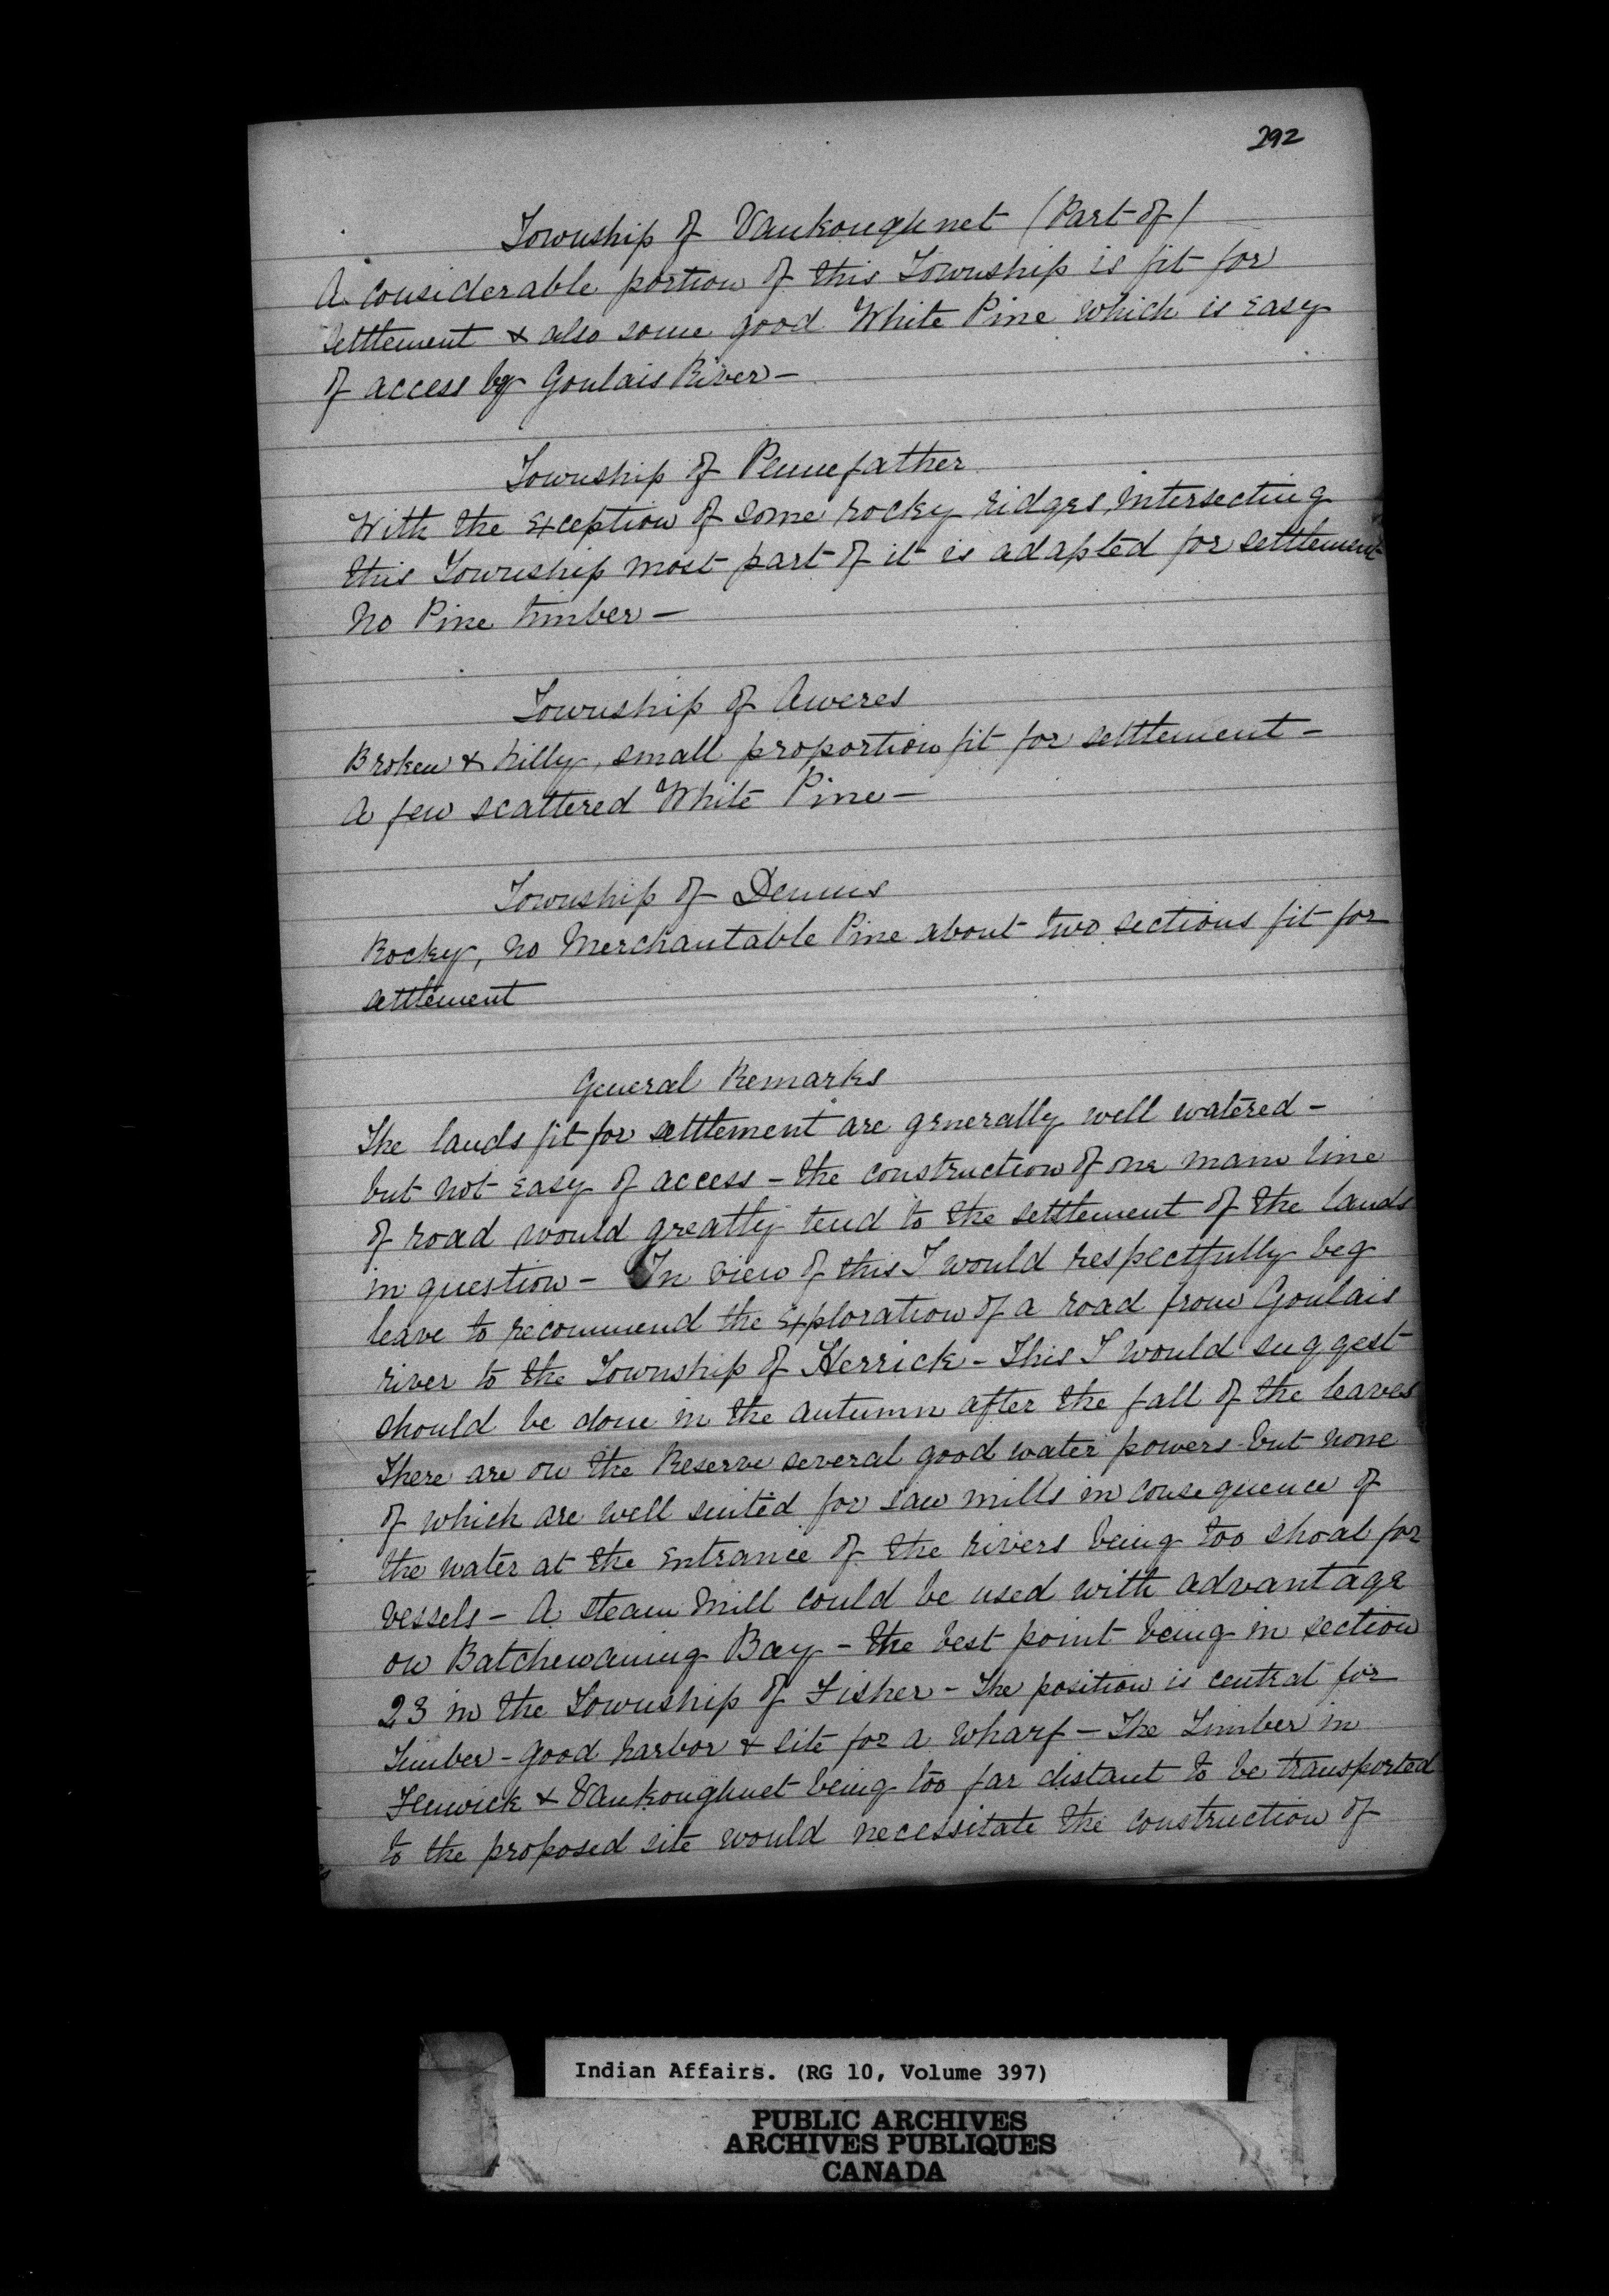 292
Township of Vankoughnet (Part of)
A considerable portion of this Township is fit for
settlement & also some good White Pine which is easy
of access by Goulais River —
Township of Pennefather
With the exception of some rocky ridges, intersecting
this Township most part of it is adapted for settlement
No Pine timber —
Township of Aweres
Broken & hilly, small proportion fit for settlement —
A few scattered White Pine —
Township of Dennis
Rocky, no Merchantable Pine about two sections fit for
settlement
General Remarks
The lands fit for settlement are generally well watered —
but not easy of access — the construction of one main line
of road would greatly tend to the settlement of the lands
in question — In view of this I would respectfully beg
leave to recommend the exploration of a road from Goulais
river to the Township of Herrick — This I would suggest
should be done in the autumn after the fall of the leaves
There are on the Reserve several good water powers but none
of which are well suited for saw mills in consequence of
the water at the entrance of the rivers being too shoal for
vessels — A steam mill could be used with advantage
on Batchewaning Bay — the best point being in section
23 in the Township of Fisher — The position is central for
Timber — good harbor & site for a wharf — The Timber in
Fenwick & Vankoughnet being too far distant to be transported
to the proposed site would necessitate the construction of
Indian Affairs. (RG 10, Volume 397)
PUBLIC ARCHIVES
ARCHIVES PUBLIQUES
CANADA